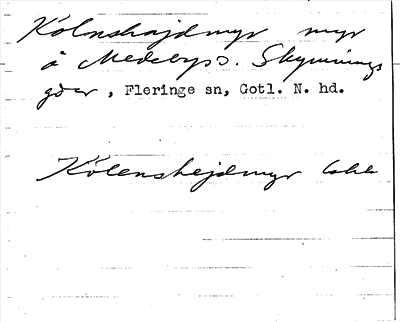 Kölnshajdmyr myr
å Medebys o. Skymnings
gdar, Fleringe sn, Gotl. N. hd.
Kölenshejdmyr